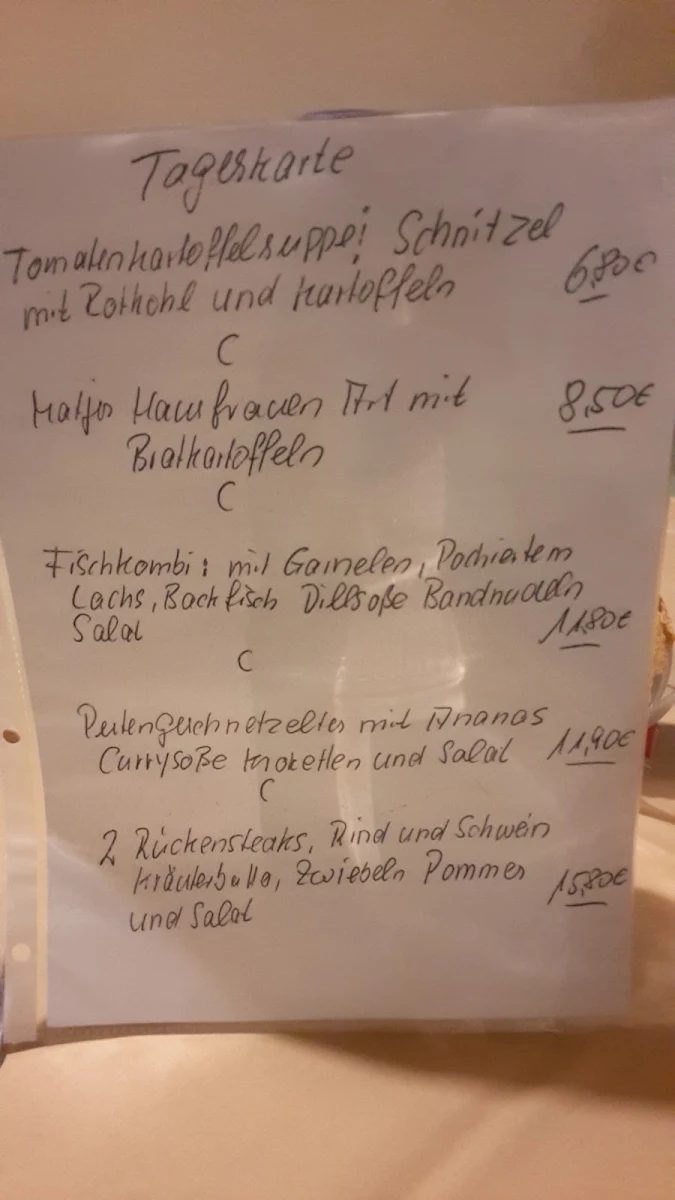 Tageskarte
Tomatenkartoffelsuppe! Schnitzel
mit Rotkohl und Kartoffeln 6,80€
C
Matjes Hausfrauen Art mit 8,50€
Bratkartoffeln
C
Fischkombi: mit Garnelen, Pochiertem
Lachs, Backfisch Dillsoße Bandnudeln
Salat 11,80€
C
Putengeschnetzeltes mit Ananas
Currysoße Kroketten und Salat 11,90€
C
2 Rückensteaks, Rind und Schwein
Kräuterbutter, Zwiebeln Pommes 15,80€
und Salat